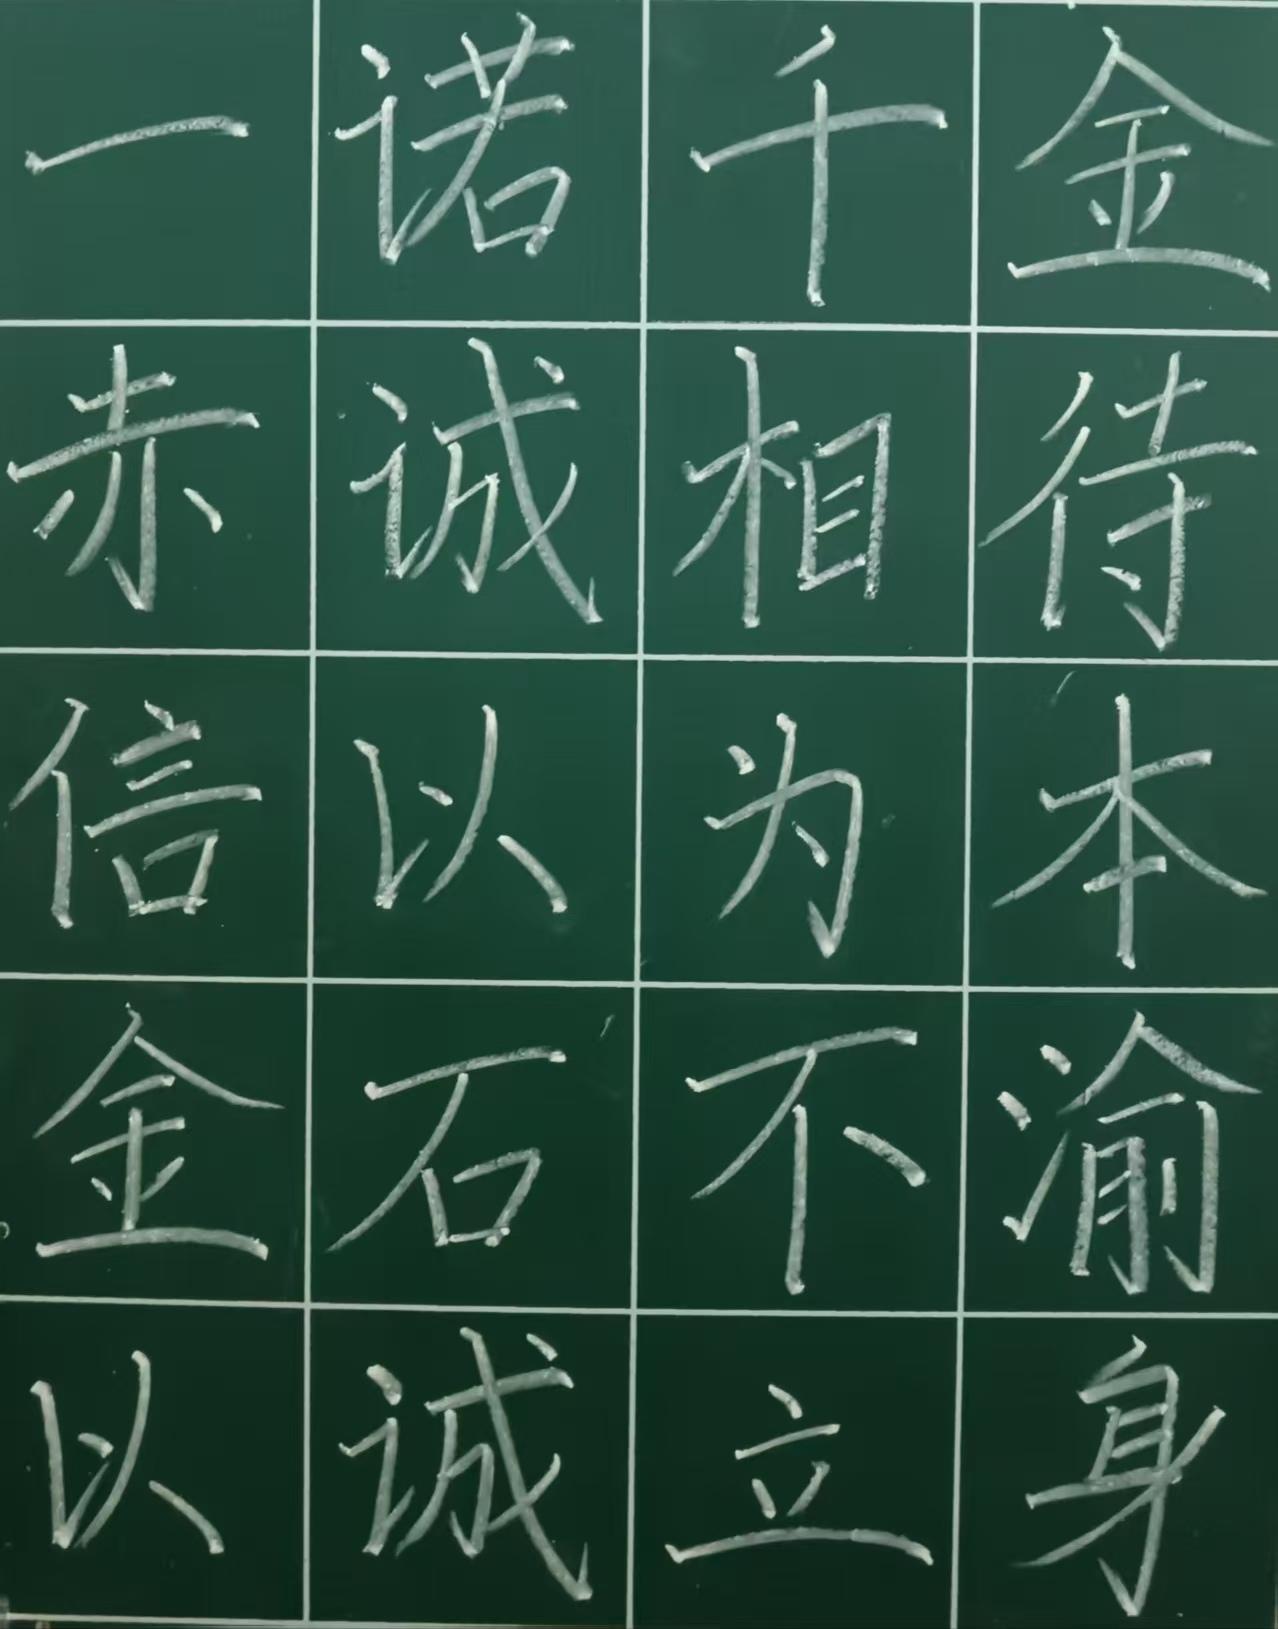 一诺千金
赤诚相待
信以为本
金石不渝
以诚立身